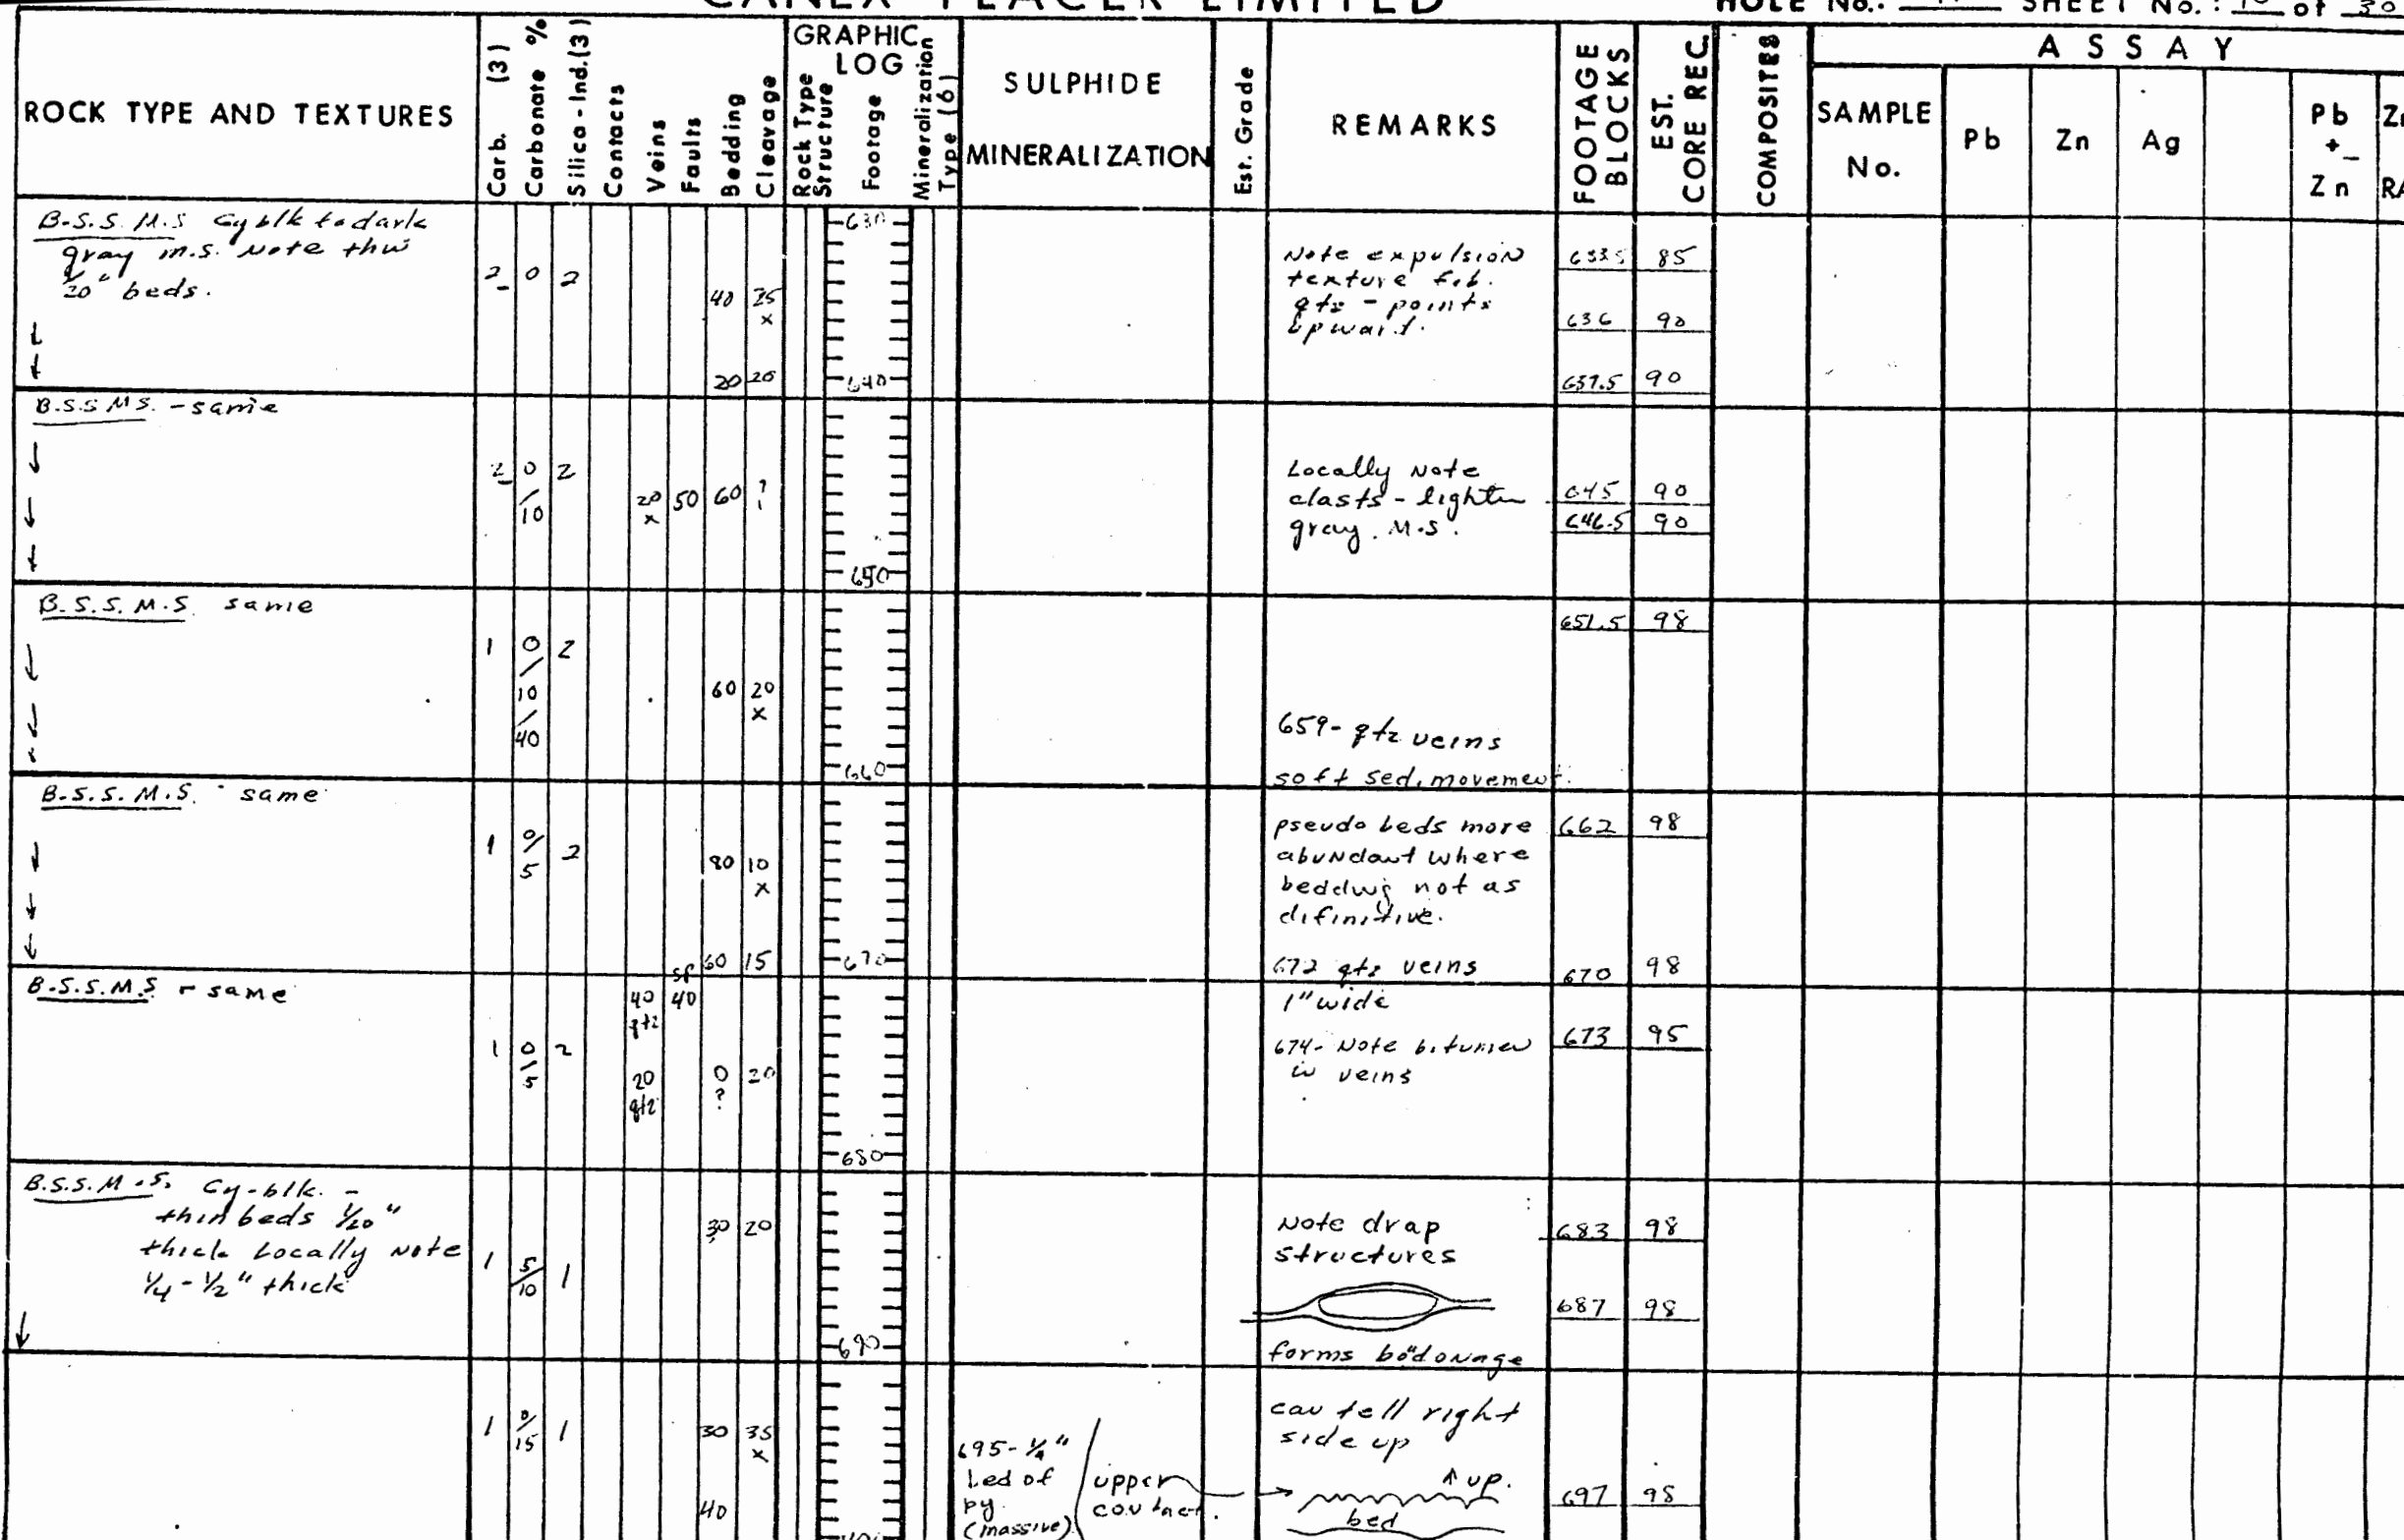 CANEX PLACER LIMITED
HOLE No.: SHEET No.: of 30
ROCK TYPE AND TEXTURES
Carb. (3)
Carbonate %
Silica-Ind.(3)
Contacts
Veins
Faults
Bedding
Cleavage
GRAPHIC LOG
Rock Type
Structure
Footage
Mineralization
Type (6)
SULPHIDE
MINERALIZATION
Est. Grade
REMARKS
FOOTAGE
BLOCKS
EST.
CORE REC.
COMPOSITES
ASSAY
SAMPLE
No.
Pb
Zn
Ag
Pb
+
Zn
B.S.S. M.S Gy blk to dark
gray m.s. Note thin
1/20" beds.
2 0 2
40 25
x
20 20
630
640
Note expulsion
texture fib.
qtz - points
upward.
633.5 85
636 90
637.5 90
B.S.S M.S. - same
2 0/10 2
20 50 60 ?
x
650
Locally Note
clasts - lighter
gray. M.S.
645 90
646.5 90
B.S.S.M.S. same
1 0/10/40 2
60 20
x
660
659- qtz veins
soft sed. movement.
651.5 98
B.S.S.M.S. - same
1 0/5 2
80 10
x
60 15
670
pseudo beds more
abundant where
bedding not as
difinitive.
672 qtz veins
1" wide
662 98
670 98
B.S.S.M.S - same
40 40
qtz
1 0/5 2
20 0 20
qtz ?
680
674- Note bitumen
in veins
673 95
B.S.S.M.S. Gy-blk. -
thin beds 1/20"
thick Locally Note
1/4-1/2" thick
30 20
1 5/10 1
690
Note drap
structures
forms bodonage
683 98
687 98
1 0/15 1
30 35
x
40
695- 1/4"
bed of
py.
(massive)
upper
contact.
can tell right
side up
↑ up.
bed
697 98